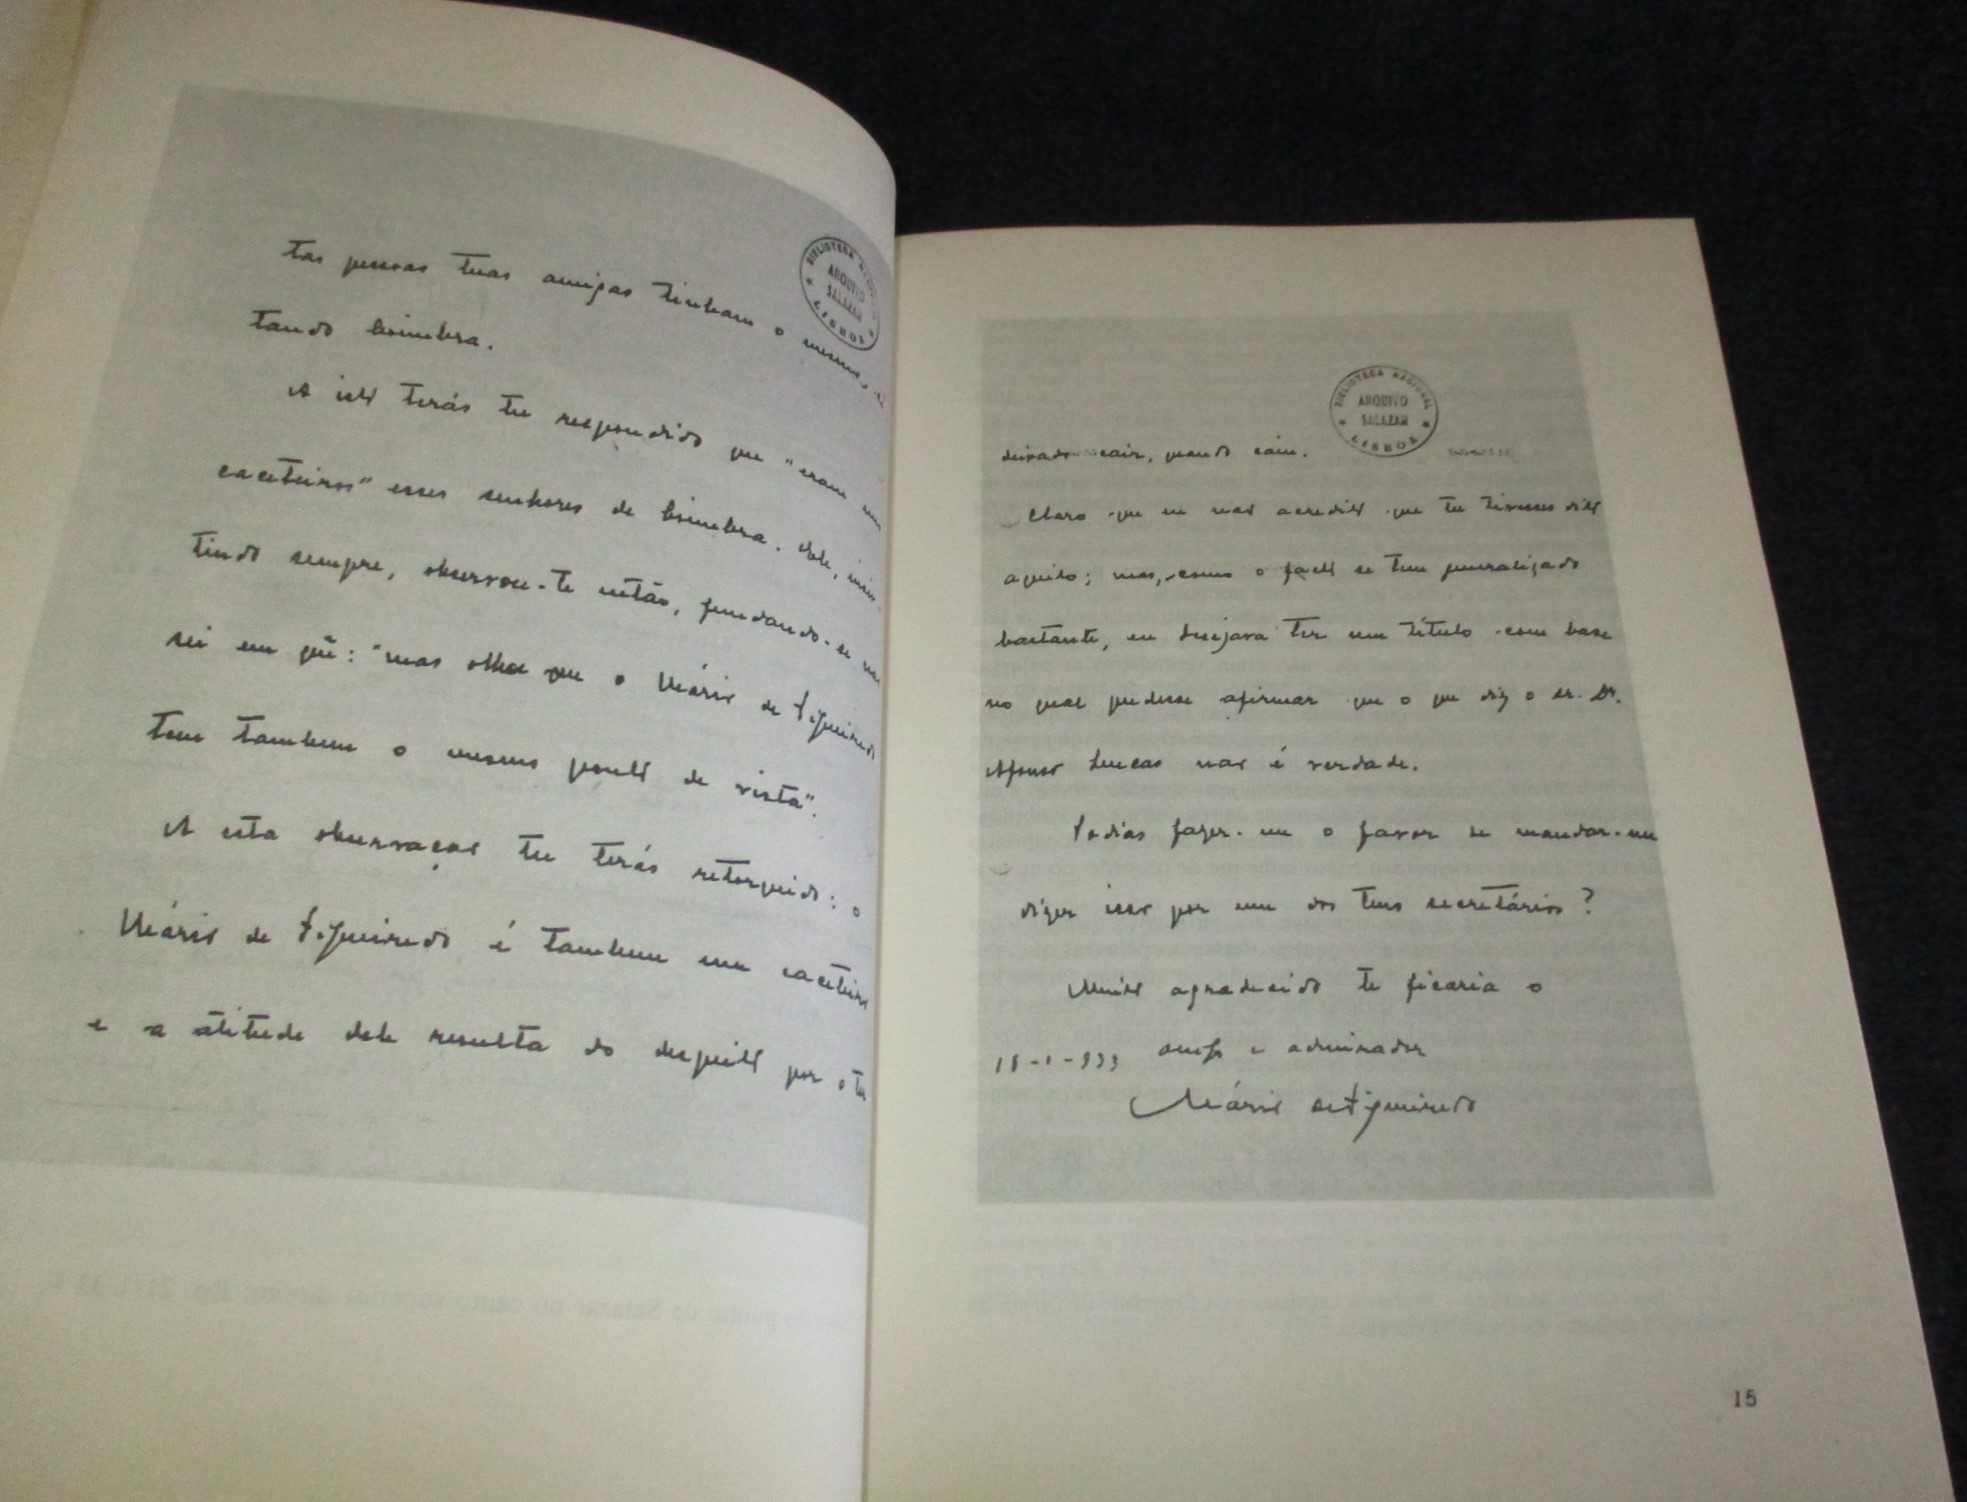 tas pessoas tuas amigas tinham o mesmo,
tando Coimbra.
A isto terás tu respondido que "eram uns
caceteiros" esses senhores de Coimbra. Ele, insis-
tindo sempre, observou-te então, fundando-se não
sei em quê: "mas olha que o Mário de Figueiredo
tem tambem o mesmo ponto de vista".
A esta observação tu terás retorquido: o
Mário de Figueiredo é tambem um caceteiro
e a atitude dele resulta do despeito por o ter
BIBLIOTECA NACIONAL
ARQUIVO
SALAZAR
LISBOA
BIBLIOTECA NACIONAL
ARQUIVO
SALAZAR
LISBOA
deixado cair, quando caiu.
Claro que eu não acredito que tu tivesses dito
aquilo; mas, como o facto se tem generalizado
bastante, eu desejava ter um título com base
no qual pudesse afirmar que o que diz o sr. Dr.
Afonso Lucas não é verdade.
Podias fazer-me o favor de mandar-me
dizer isso por um dos teus secretários?
Muito agradecido te ficaria o
amigo e admirador
18-1-933
Mário de Figueiredo
15